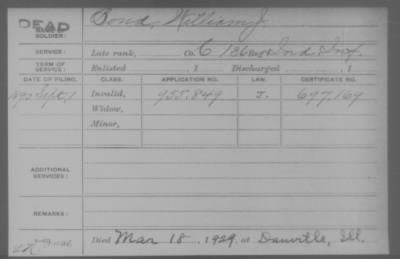 DEAD Bond, William J.
SOLDIER:
SERVICE: Late rank, Co. C 136 Reg't Ind Inf.
TERM OF SERVICE: Enlisted , 1 Discharged , 1
DATE OF FILING. CLASS. APPLICATION NO. LAW. CERTIFICATE NO.
Sept. 1 Invalid, 955.849 J. 697.169
Widow,
Minor,
ADDITIONAL SERVICES:
REMARKS:
Died Mar 18, 1929, at Danville, Ill.